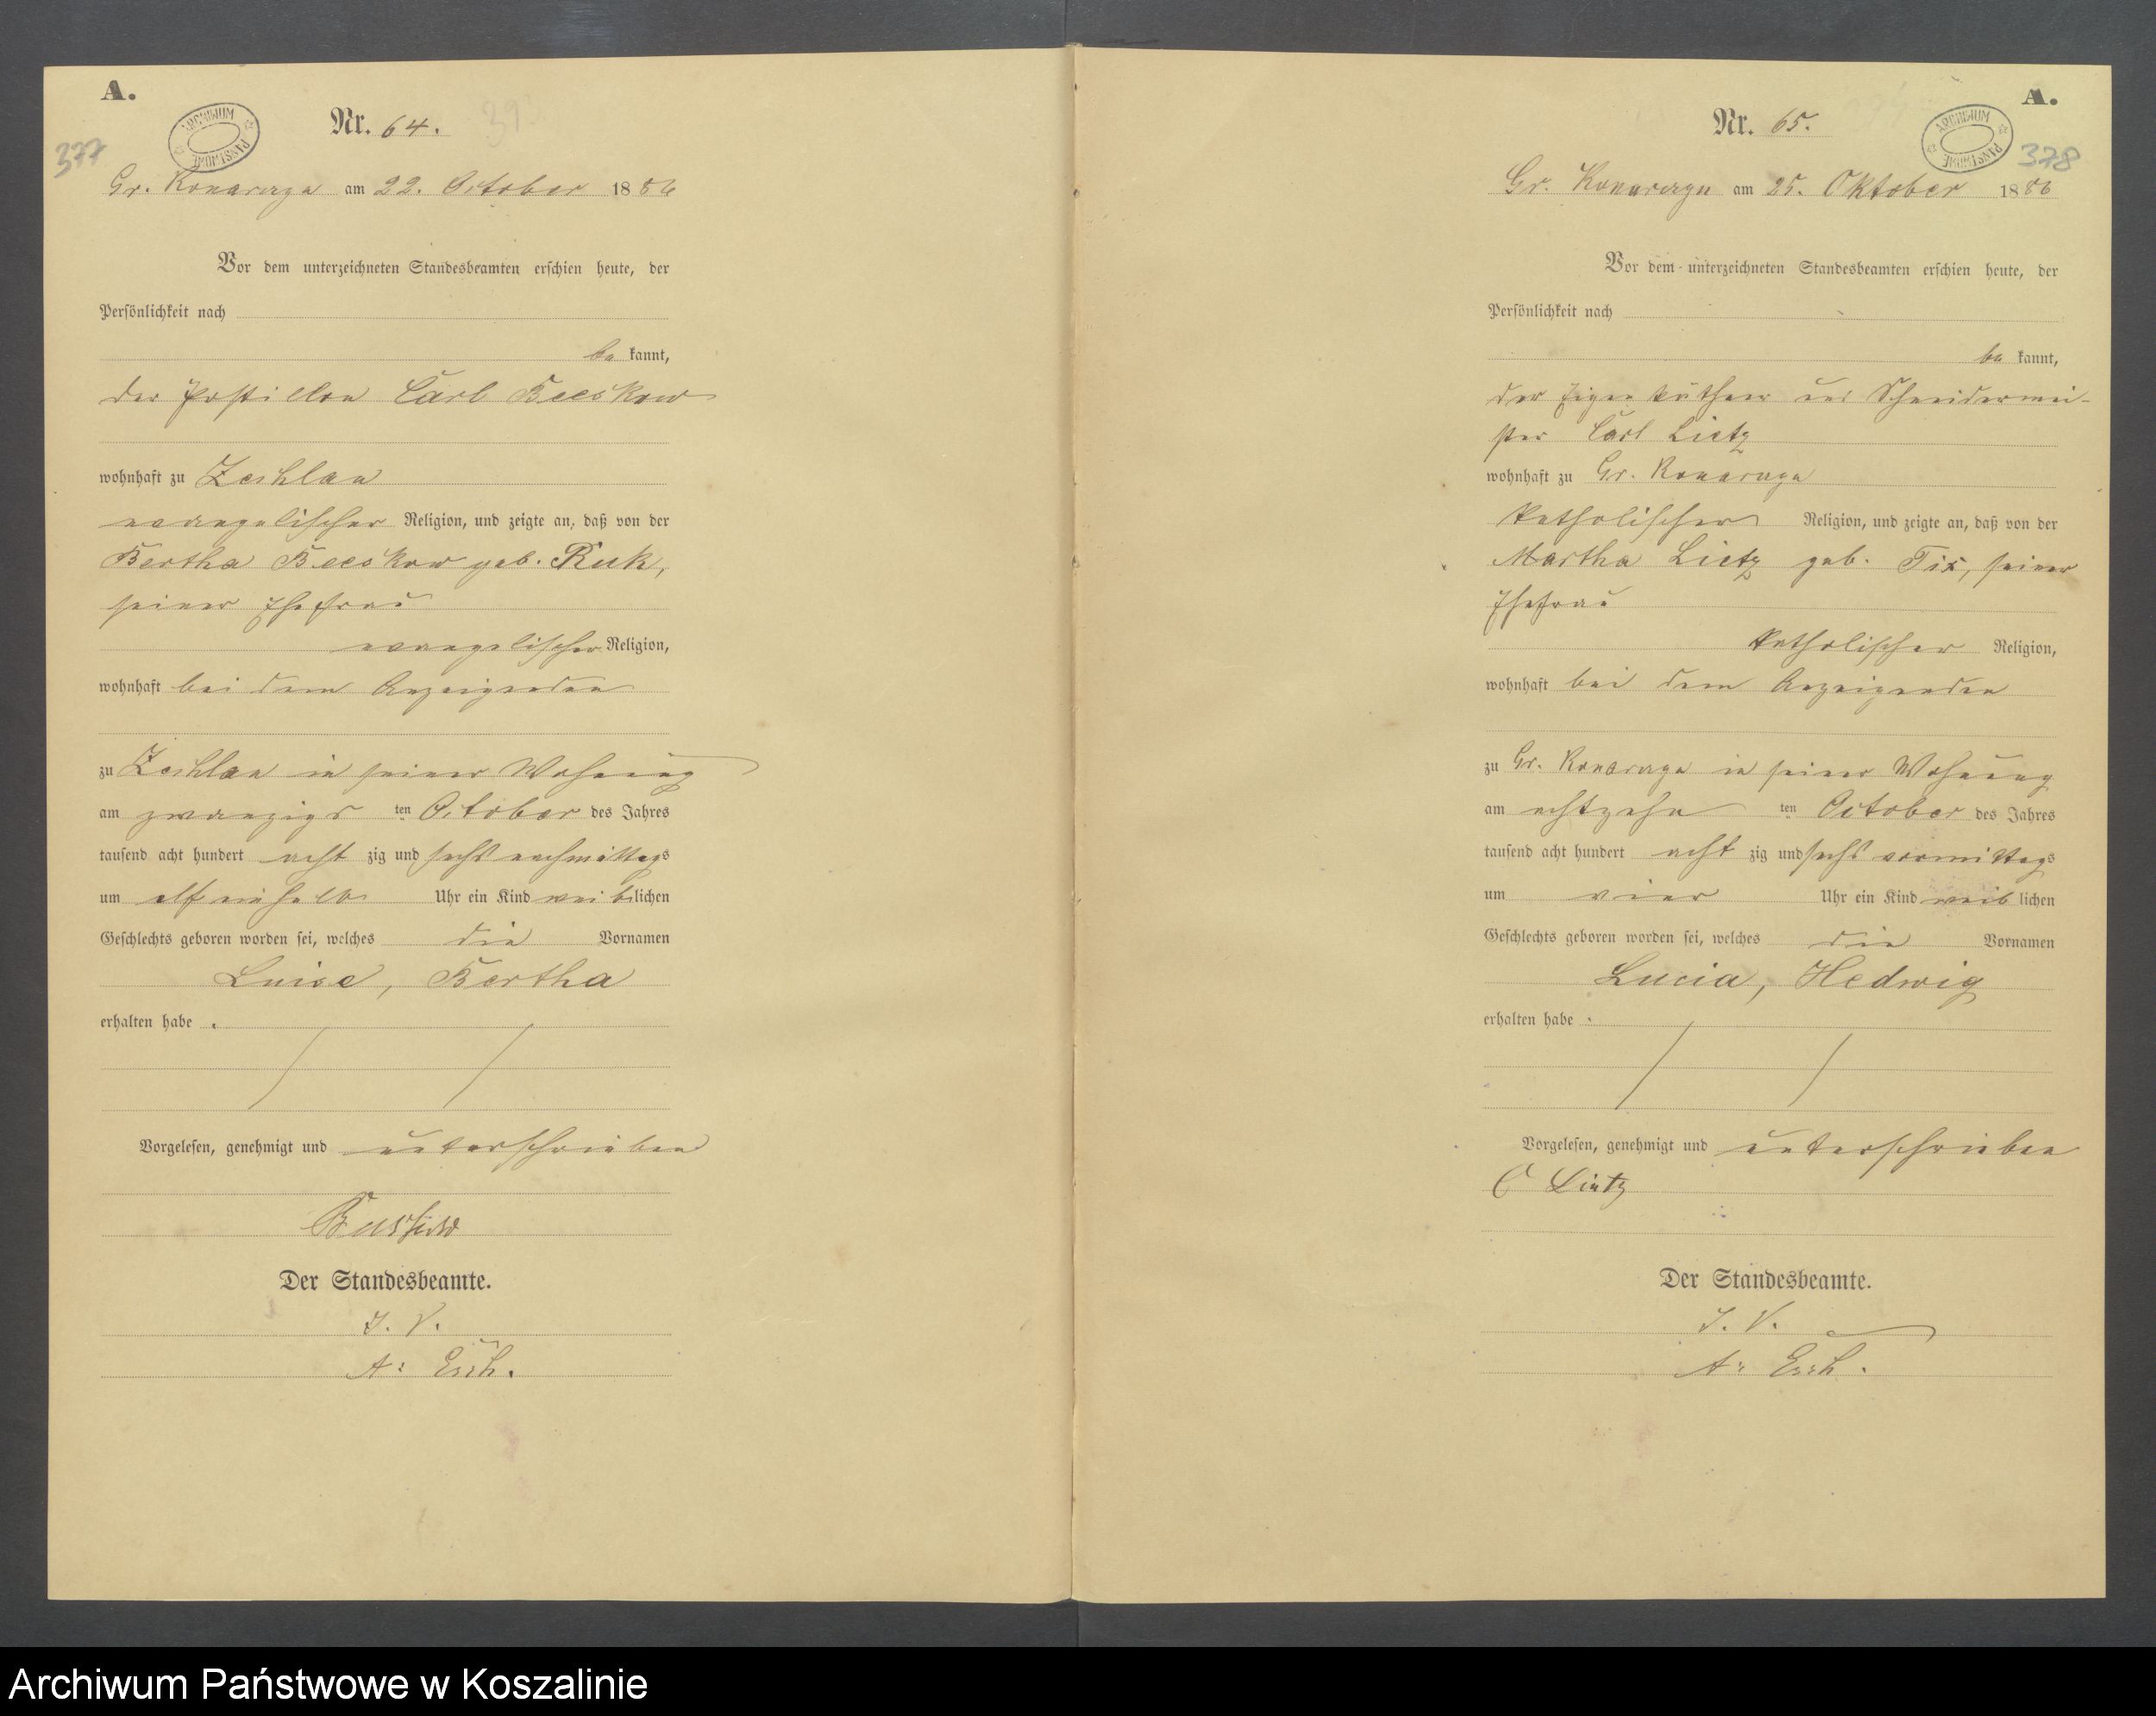 A.
Nr. 64.
ARCHIWUM PAŃSTWOWE
377
Gr. Konarczyn am 22. October 1886
Vor dem unterzeichneten Standesbeamten erschien heute, der
Persönlichkeit nach
be kannt,
der Postillon Carl Beeskow
wohnhaft zu Zechlau
evangelischer Religion, und zeigte an, daß von der
Bertha Beeskow geb. Ruk,
seiner Ehefrau
evangelischer Religion,
wohnhaft bei dem Anzeigenden
zu Zechlau in seiner Wohnung
am zwanzigs ten October des Jahres
tausend acht hundert acht zig und sechs nachmittags
um elfeinhalb Uhr ein Kind weiblichen
Geschlechts geboren worden sei, welches die Vornamen
Luise, Bertha
erhalten habe.
Vorgelesen, genehmigt und unterschrieben
Der Standesbeamte.
J. V.
A:
A.
Nr. 65.
ARCHIWUM PAŃSTWOWE
378
Gr. Konarczyn am 25. Oktober 1886
Vor dem unterzeichneten Standesbeamten erschien heute, der
Persönlichkeit nach
be kannt,
der Eigenkäthner und Schneidermei-
ster Carl Lietz
wohnhaft zu Gr. Konarczyn
katholischer Religion, und zeigte an, daß von der
Martha Lietz geb. Fix, seiner
Ehefrau
katholischer Religion,
wohnhaft bei dem Anzeigenden
zu Gr. Konarczyn in seiner Wohnung
am achtzehn ten October des Jahres
tausend acht hundert acht zig und sechs vormittags
um vier Uhr ein Kind weib lichen
Geschlechts geboren worden sei, welches die Vornamen
Lucia, Hedwig
erhalten habe.
Vorgelesen, genehmigt und unterschrieben
C Lietz
Der Standesbeamte.
J. V.
A:
Archiwum Państwowe w Koszalinie